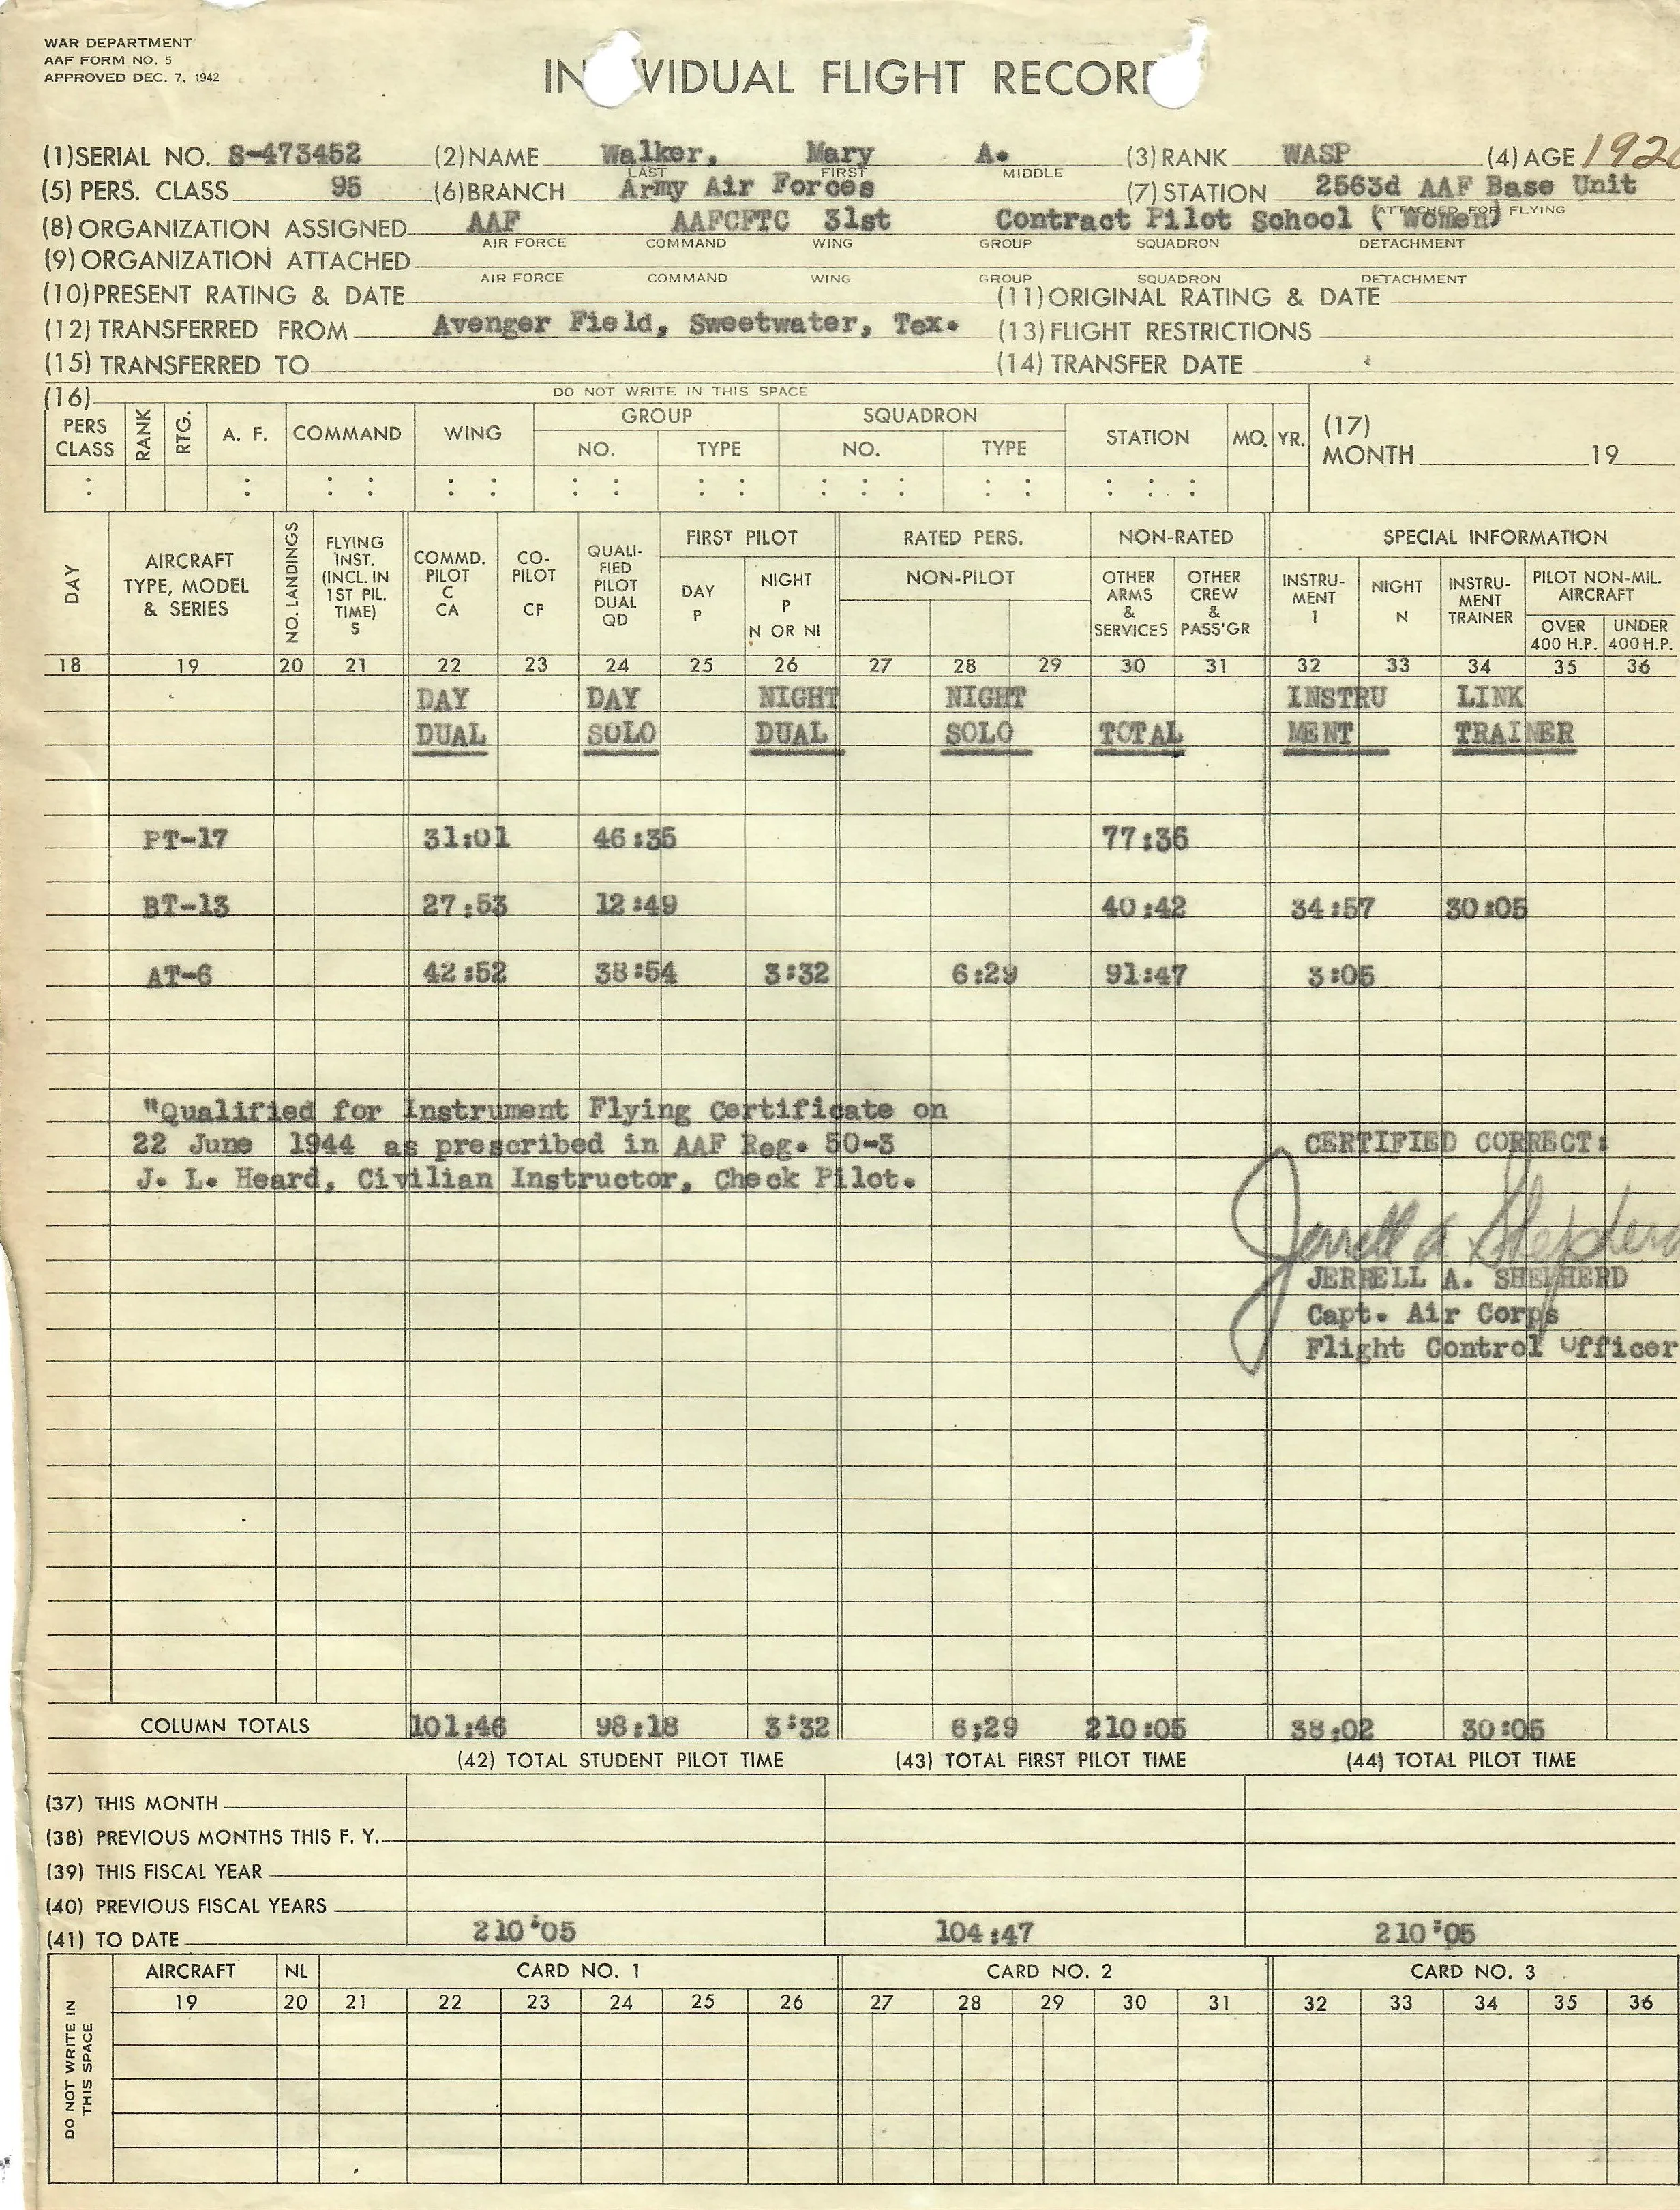 WAR DEPARTMENT
AAF FORM NO. 5
APPROVED DEC. 7, 1942
IN VIDUAL FLIGHT RECOR
(1) SERIAL NO. S-473452 (2) NAME Walker, Mary A. (3) RANK WASP (4) AGE 192
LAST FIRST MIDDLE
(5) PERS. CLASS 95 (6) BRANCH Army Air Forces (7) STATION 2563d AAF Base Unit
ATTACHED FOR FLYING
(8) ORGANIZATION ASSIGNED AAF AAFCFTC 31st Contract Pilot School (Women)
AIR FORCE COMMAND WING GROUP SQUADRON DETACHMENT
(9) ORGANIZATION ATTACHED
AIR FORCE COMMAND WING GROUP SQUADRON DETACHMENT
(10) PRESENT RATING & DATE (11) ORIGINAL RATING & DATE
(12) TRANSFERRED FROM Avenger Field, Sweetwater, Tex. (13) FLIGHT RESTRICTIONS
(15) TRANSFERRED TO (14) TRANSFER DATE
(16) DO NOT WRITE IN THIS SPACE
PERS CLASS RANK RTG. A. F. COMMAND WING GROUP NO. TYPE SQUADRON NO. TYPE STATION MO. YR. (17) MONTH 19
: : : : : : : : : : : : : : : : : :
DAY AIRCRAFT TYPE, MODEL & SERIES NO. LANDINGS FLYING INST. (INCL. IN 1ST PIL. TIME) S COMMD. PILOT C CA CO-PILOT CP QUALI-FIED PILOT DUAL QD FIRST PILOT DAY P NIGHT P N OR NI RATED PERS. NON-PILOT NON-RATED OTHER ARMS & SERVICES OTHER CREW & PASS'GR SPECIAL INFORMATION INSTRU-MENT I NIGHT N INSTRU-MENT TRAINER PILOT NON-MIL. AIRCRAFT OVER 400 H.P. UNDER 400 H.P.
18 19 20 21 22 23 24 25 26 27 28 29 30 31 32 33 34 35 36
DAY DAY NIGHT NIGHT INSTRU LINK
DUAL SOLO DUAL SOLO TOTAL MENT TRAINER
PT-17 31:01 46:35 77:36
BT-13 27:53 12:49 40:42 34:57 30:05
AT-6 42:52 38:54 3:32 6:29 91:47 3:05
"Qualified for Instrument Flying Certificate on
22 June 1944 as prescribed in AAF Reg. 50-3
J. L. Heard, Civilian Instructor, Check Pilot.
CERTIFIED CORRECT:
Jerrell A. Shepherd
JERRELL A. SHEPHERD
Capt. Air Corps
Flight Control Officer
COLUMN TOTALS 101:46 98:18 3:32 6:29 210:05 38:02 30:05
(42) TOTAL STUDENT PILOT TIME (43) TOTAL FIRST PILOT TIME (44) TOTAL PILOT TIME
(37) THIS MONTH
(38) PREVIOUS MONTHS THIS F. Y.
(39) THIS FISCAL YEAR
(40) PREVIOUS FISCAL YEARS
(41) TO DATE 210:05 104:47 210:05
DO NOT WRITE IN THIS SPACE
AIRCRAFT NL CARD NO. 1 CARD NO. 2 CARD NO. 3
19 20 21 22 23 24 25 26 27 28 29 30 31 32 33 34 35 36